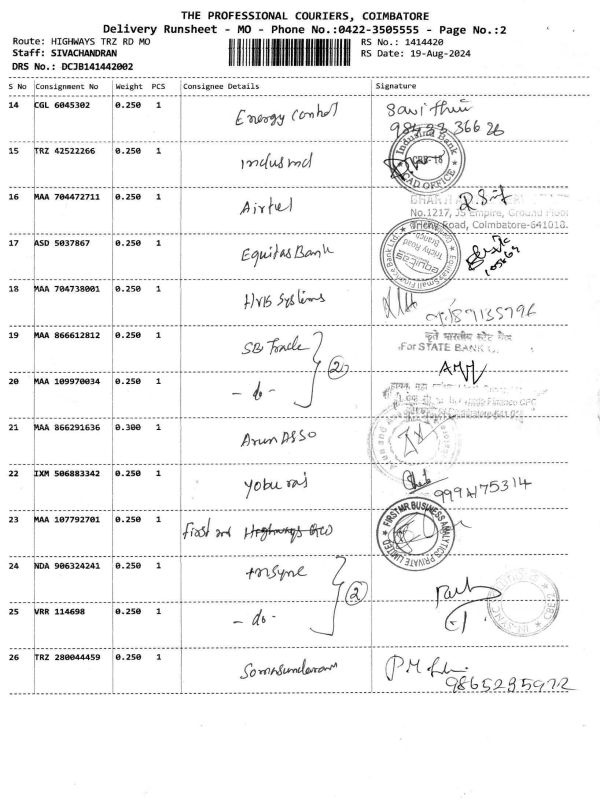 THE PROFESSIONAL COURIERS, COIMBATORE
Delivery Runsheet - MO - Phone No.:0422-3505555 - Page No.:2
Route: HIGHWAYS TRZ RD MO
RS No.: 1414420
Staff: SIVACHANDRAN
RS Date: 19-Aug-2024
DRS No.: DCJB141442002
S No Consignment No Weight PCS Consignee Details Signature
14 CGL 6045302 0.250 1 Energy control
15 TRZ 42522266 0.250 1 Indusind
Indusind Bank
HEAD OFFICE
16 MAA 704472711 0.250 1 Airtel
No.1217, JS Empire, Ground Floor
Trichy Road, Coimbatore-641018.
17 ASD 5037867 0.250 1 Equitas Bank
Equitas Small Finance Bank Ltd
Trichy Road
Branch
equitas
18 MAA 704738001 0.250 1 HVB Systems
19 MAA 866612812 0.250 1 SBI Trade
For STATE BANK
20 MAA 109970034 0.250 1 - do - 2
21 MAA 866291636 0.300 1 Arun ASSO
22 IXM 506883342 0.250 1 Yobu raj
23 MAA 107792701 0.250 1 First mr
FIRSTMR BUSINESS ANALYTICS PRIVATE LIMITED
24 NDA 906324241 0.250 1 Insync
25 VRR 114698 0.250 1 - do - 2
26 TRZ 280044459 0.250 1 Somasundaram
9865295972